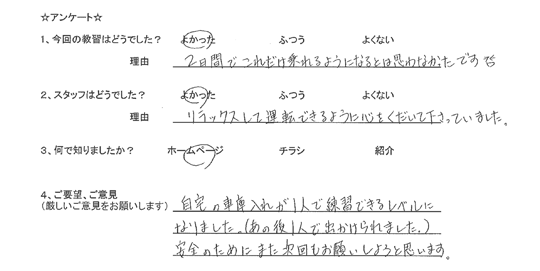 ☆アンケート☆
1、今回の教習はどうでした? よかった ふつう よくない
理由 2日間でこれだけ乗れるようになるとは思わなかたです
2、スタッフはどうでした? よかった ふつう よくない
理由 リラックスして運転できるように心をくだいて下さっていました。
3、何で知りましたか? ホームページ チラシ 紹介
4、ご要望、ご意見
(厳しいご意見をお願いします)
自宅の車庫入れが1人で練習できるレベルに
なりました。(あの後1人で出かけられました。)
安全のためにまた次回もお願いしようと思います。